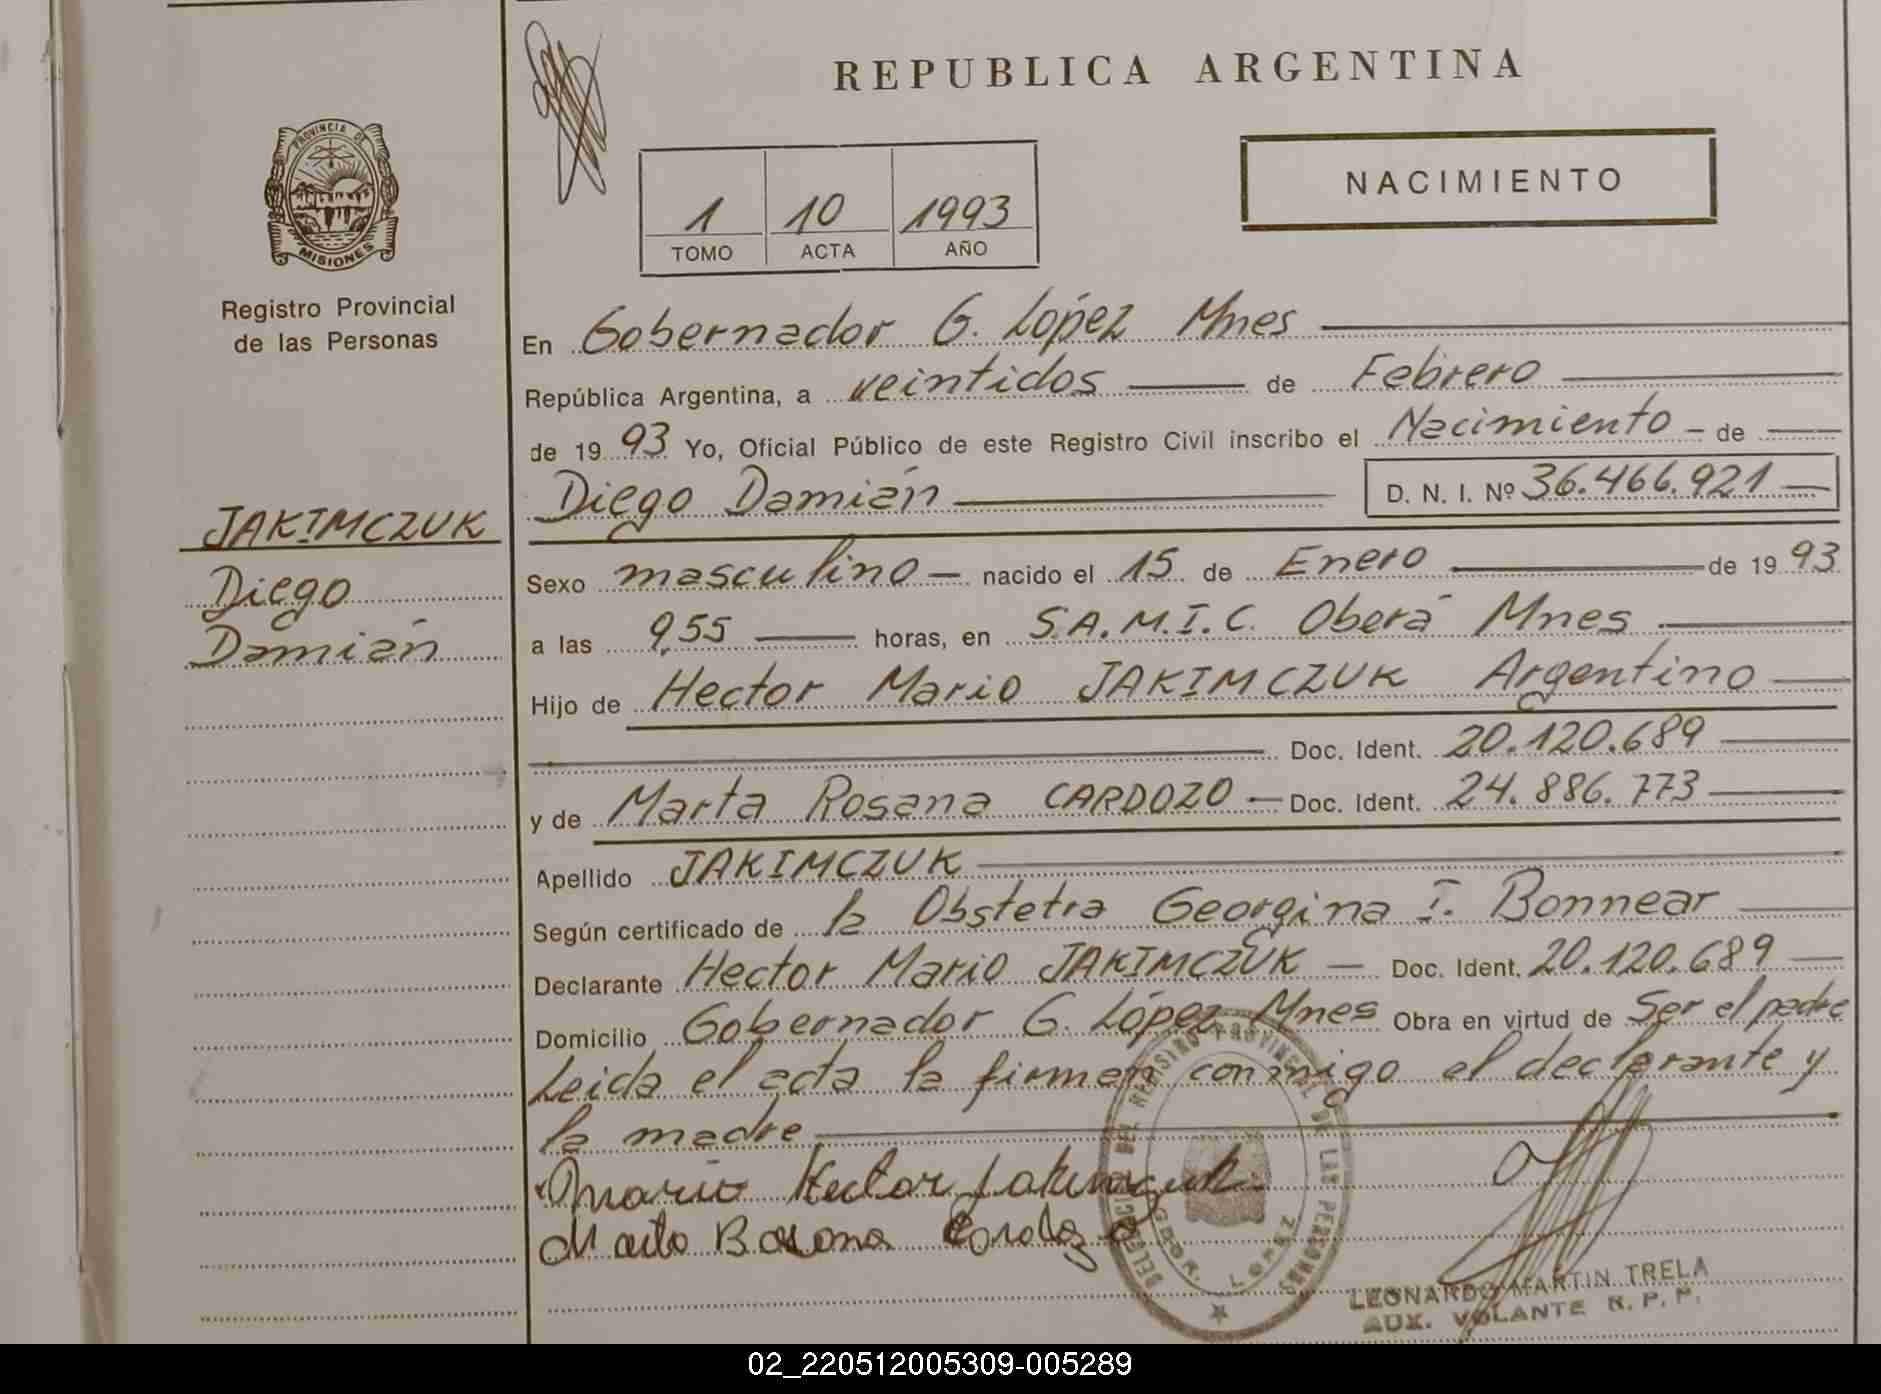 REPUBLICA ARGENTINA
NACIMIENTO
1 10 1993
TOMO ACTA AÑO
PROVINCIA DE
MISIONES
Registro Provincial
de las Personas
JAKIMCZUK
Diego
Damián
En Gobernador G. López Mnes
República Argentina, a veintidos de Febrero
de 19 93 Yo, Oficial Público de este Registro Civil inscribo el Nacimiento de
Diego Damián D. N. I. Nº 36.466.921
Sexo masculino nacido el 15 de Enero de 19 93
a las 9,55 horas, en S.A.M.I.C. Oberá Mnes
Hijo de Hector Mario JAKIMCZUK Argentino
Doc. Ident. 20.120.689
y de Marta Rosana CARDOZO Doc. Ident. 24.886.773
Apellido JAKIMCZUK
Según certificado de la Obstetra Georgina I. Bonnear
Declarante Hector Mario JAKIMCZUK Doc. Ident. 20.120.689
Domicilio Gobernador G. López Mnes Obra en virtud de Ser el padre
Leida el acta la firman conmigo el declarante y
la madre
Mario Hector Jakimczuk
Marta Rosana Cardozo
DEL REGISTRO PROVINCIAL DE LAS PERSONAS
GDOR. LOPEZ
LEONARDO MARTIN TRELA
AUX. VOLANTE R. P. P.
02_220512005309-005289